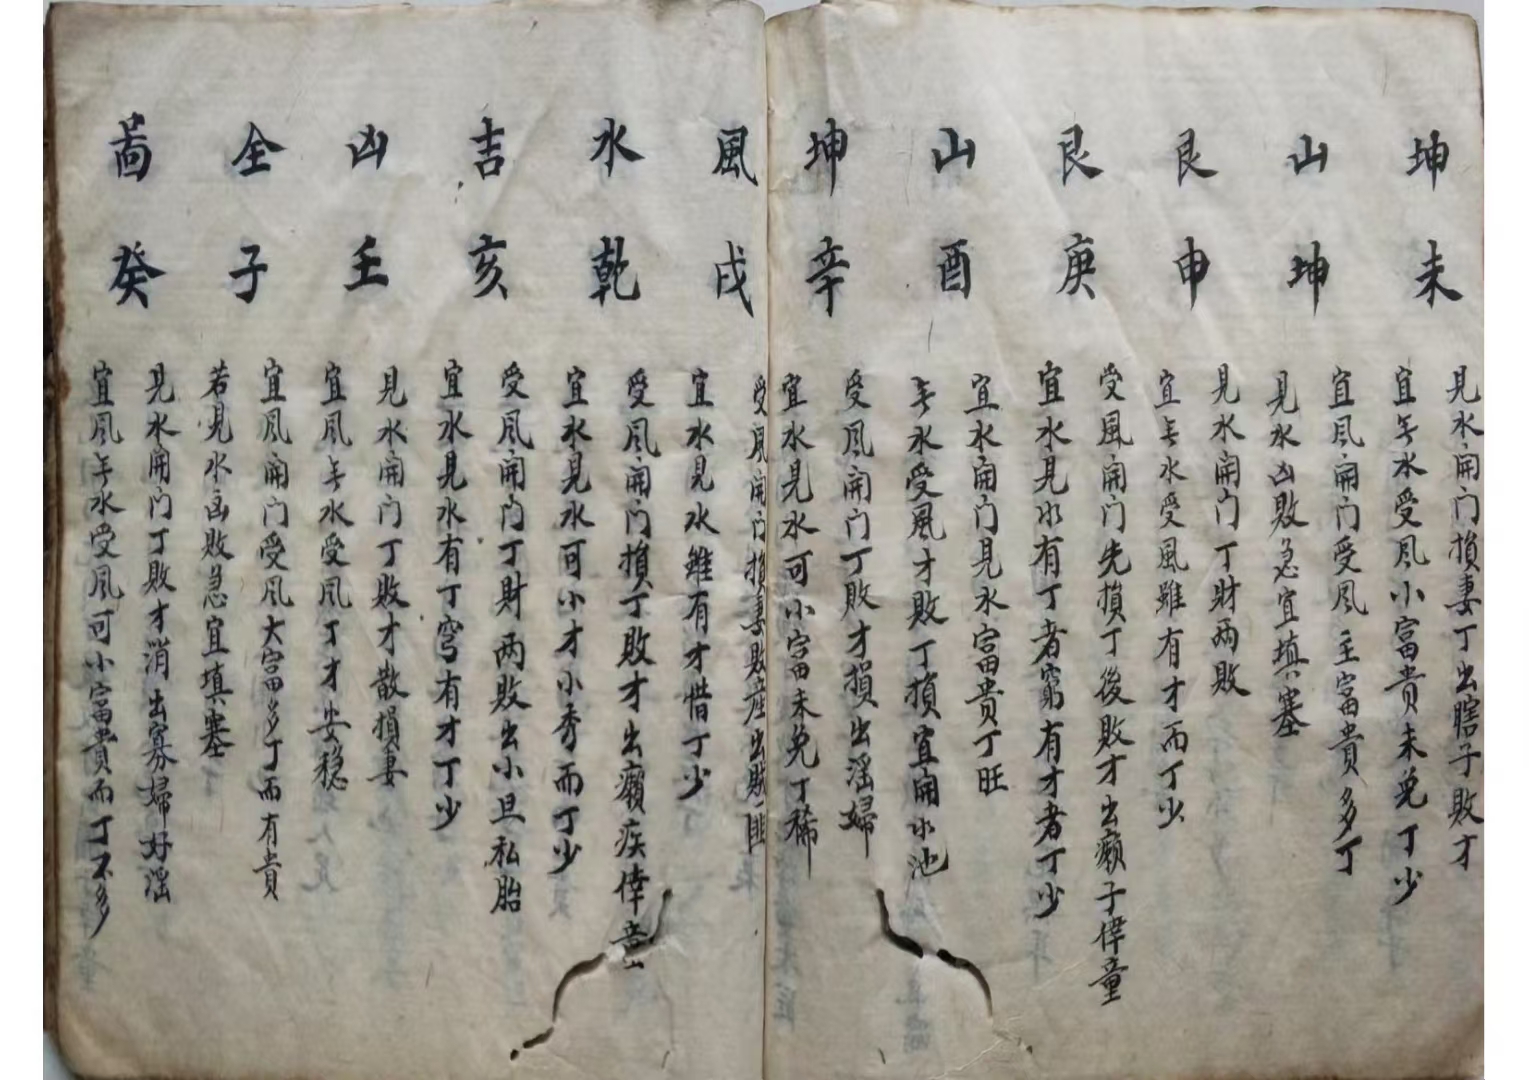 坤山艮艮山坤
未坤申庚酉辛
見水開门損妻丁出瞎子敗才
宜无水受风小富貴未免丁少
宜风開门受风主富貴多丁
見水凶敗急宜填塞
見水開门丁財两敗
宜无水受風雖有才而丁少
受風開门先損丁後敗才出癩子侓童
宜水見水有丁者窮有才者丁少
宜水開门見水富貴丁旺
无水受風才敗丁損宜開水池
受风開门丁敗才損出淫婦
宜水見水可小富未免丁稀
風水吉凶全啚
戌乾亥壬子癸
受風開门損妻敗産出賊匪
宜水見水雖有才惜丁少
受风開门損丁敗才出癩疾侓童
宜水見水可小才小秀而丁少
受风開门丁財两敗出小旦私胎
宜水見水有丁穷有才丁少
見水開门丁敗才散損妻
宜风无水受风丁才安稳
宜风開门受风大富多丁而有貴
若見水凶敗急宜填塞
見水開门丁敗才消出寡婦好淫
宜风无水受风可小富貴而丁不多